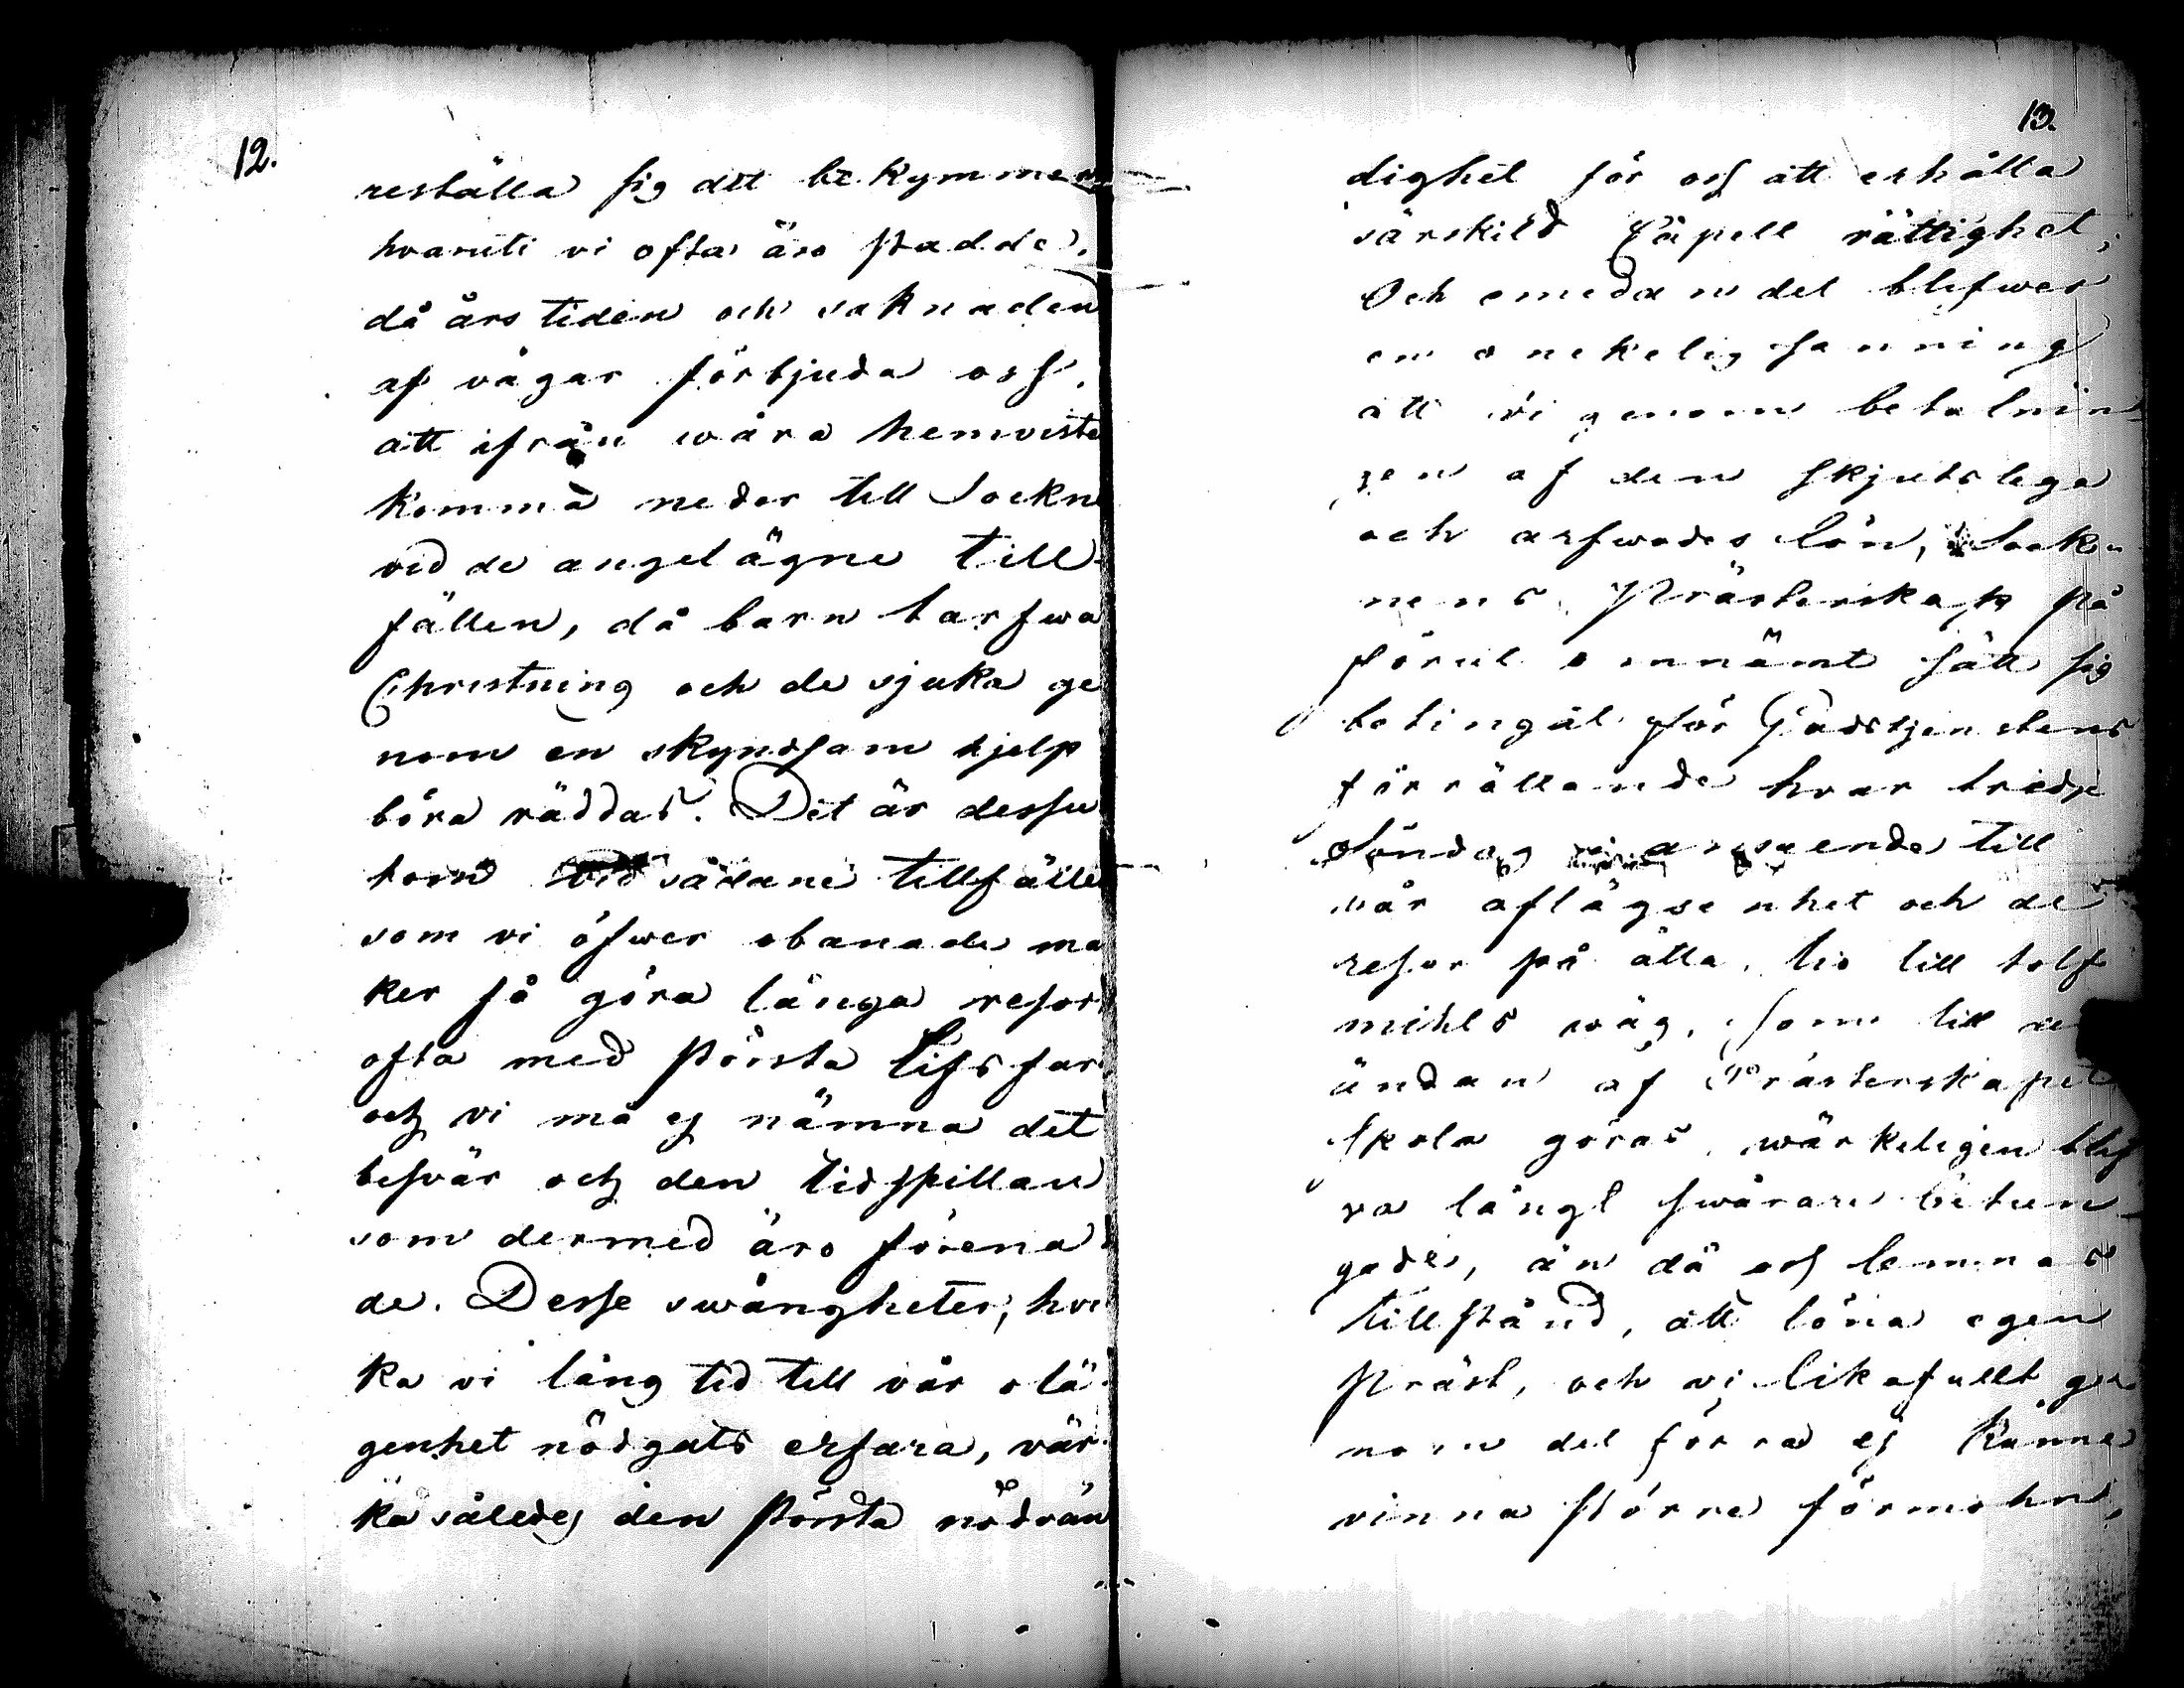 12.
reställa sig det bekymmer
hvaruti vi ofta äro stadde,
då års tiden och saknaden
af vägar förbjuda oss,
att ifrån wåra hemviste
komma neder till Sockne
vid de angelägne till-
fällen, då barn tarfwa
Christning och de sjuka ge
nom en skyndsam hjelp
böra räddas. Det är dessu
tom vid sådane tillfälle
som vi öfwer obanade ma
ker få göra långa resor
ofta med största Lifs far
och vi må ej nämna det
besvär och den tidspillan
som dermed äro förena
de. Desse swångheter, hvi
ka vi lång tid till vår olä-
genhet nödgats erfara, vär-
ka således den största nödvän
13.
dighet för oss att erhålla
särskild Capell rättighet;
Och emedan det blifwer
en onekelig sanning
att vi genom betalnin
gen af den skjutslega
och arfwodes lön, Sock
nens Prästerskap på
förut omnämt sätt sig
betingat för Gudstjenstens
förrättande hvar tredje
Söndag i anseende till
vår aflägsenhet och de
resor på åtta, tio till tolf
mihls wäg, som till de
ändan af Prästerskapet
skola göras, wärkeligen blif
va långt swårare betun
gade, än då oss lemnas
tillstånd, att löna egen
Präst, och vi likafullt ge
nom det förra ej kunna
vinna större förmohn,